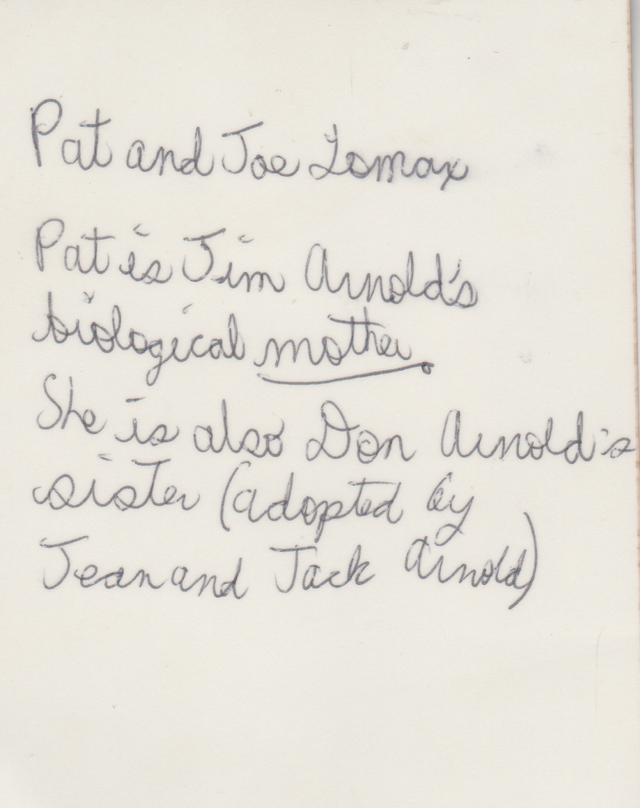 Pat and Joe Lomax
Pat is Jim Arnold's
biological mother.
She is also Don Arnold's
sister (adopted by
Jean and Jack Arnold)